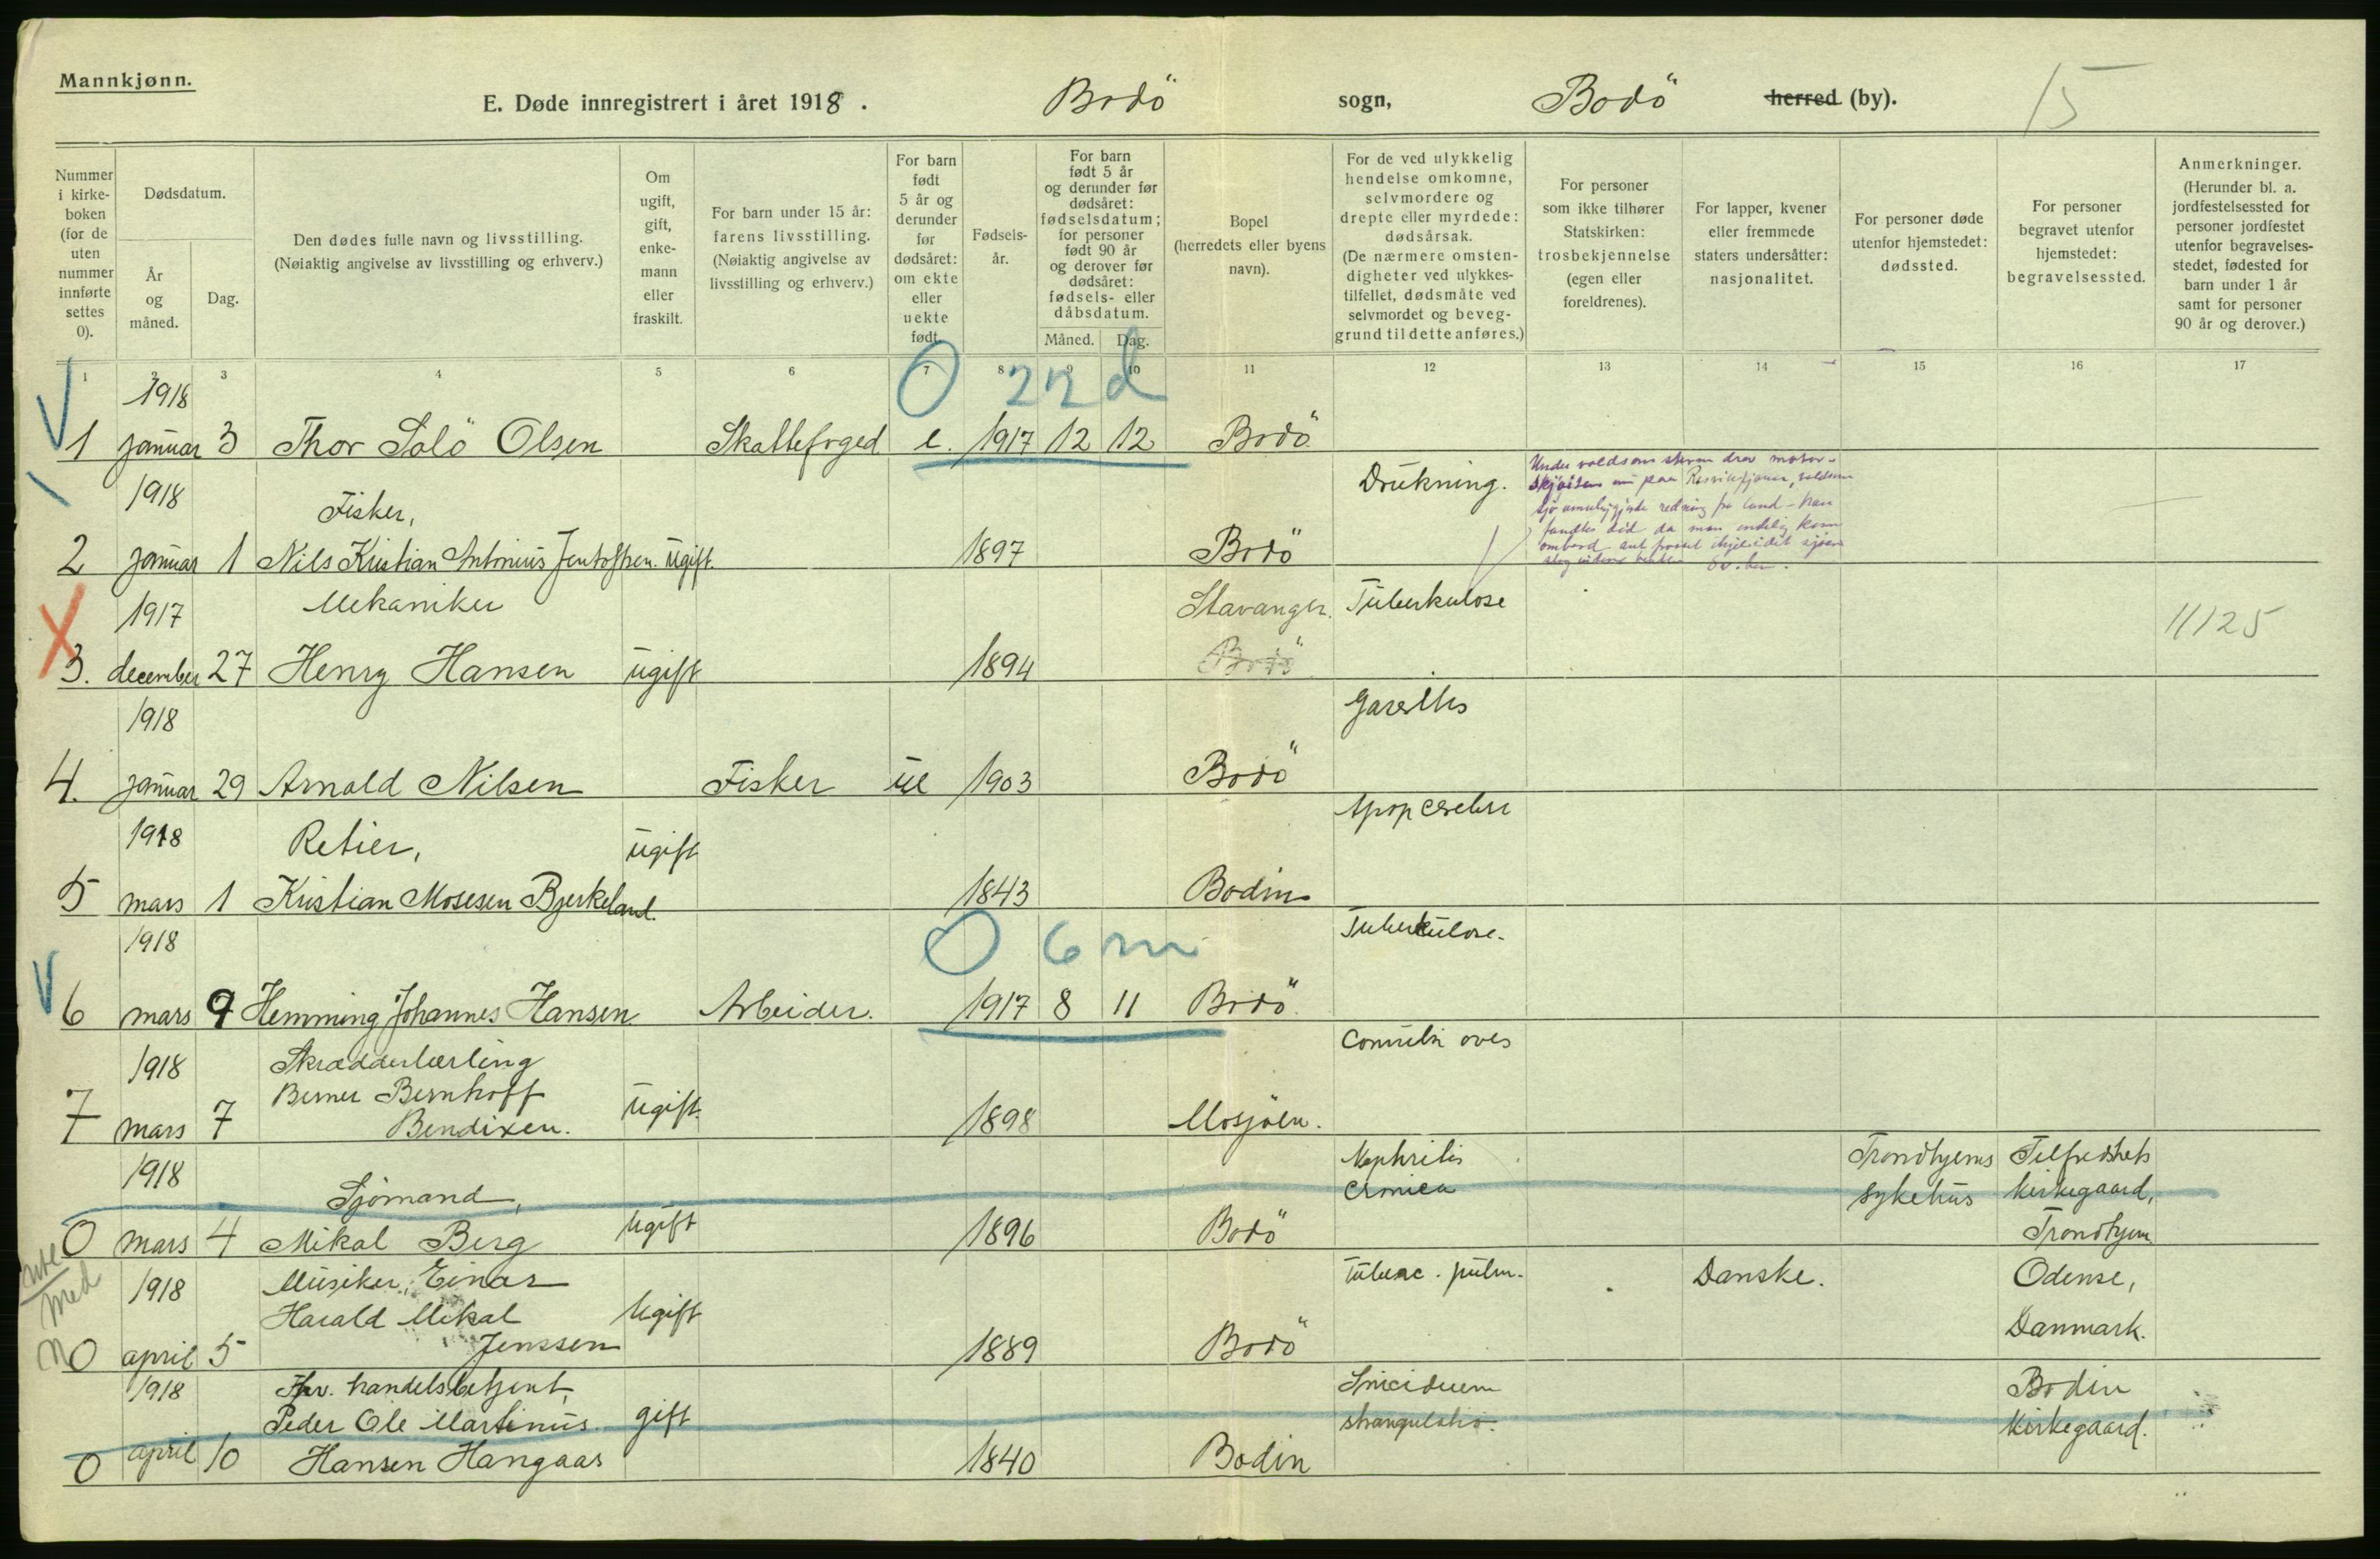 Mannkjønn.
E. Døde innregistrert i året 1918. Bodö sogn, Bodö herred (by). 15
Nummer i kirke-boken (for de uten nummer innførte settes 0).
Dødsdatum.
År og måned.
Dag.
Den dødes fulle navn og livsstilling. (Nøiaktig angivelse av livsstilling og erhverv.)
Om ugift, gift, enke-mann eller fraskilt.
For barn under 15 år: farens livsstilling. (Nøiaktig angivelse av livsstilling og erhverv.)
For barn født 5 år og derunder før dødsåret: om ekte eller uekte født.
Fødsels-år.
For barn født 5 år og derunder før dødsåret: fødselsdatum; for personer født 90 år og derover før dødsåret: fødsels- eller dåbsdatum.
Måned. Dag.
Bopel (herredets eller byens navn).
For de ved ulykkelig hendelse omkomne, selvmordere og drepte eller myrdede: dødsårsak. (De nærmere omsten-digheter ved ulykkes-tilfellet, dødsmåte ved selvmordet og beveg-grund til dette anføres.)
For personer som ikke tilhører Statskirken: trosbekjennelse (egen eller foreldrenes).
For lapper, kvener eller fremmede staters undersåtter: nasjonalitet.
For personer døde utenfor hjemstedet: dødssted.
For personer begravet utenfor hjemstedet: begravelsessted.
Anmerkninger. (Herunder bl. a. jordfestelsessted for personer jordfestet utenfor begravelses-stedet, fødested for barn under 1 år samt for personer 90 år og derover.)
1 2 3 4 5 6 7 8 9 10 11 12 13 14 15 16 17
1918 0 22 d
1 januar 3 Thor Solö Olsen Skattefoged e. 1917 12 12 Bodö
1918 Fisker, Drukning.
2 januar 1 Nils Kristian Antonius Jentoftsen. Ugift. 1897 Bodö
1917 Mekaniker Stavanger. Tuberkulose 11125
3. december 27 Henry Hansen ugift 1894 Bodö
1918
4. januar 29 Arnold Nilsen Fisker ue 1903 Bodö
1918 Retier, ugift Apop cerebri
5 mars 1 Kristian Mosesen Bjerkeland. 1843 Bodin
1918 0 6 m Tuberkulose.
6 mars 9 Hemming Johannes Hansen. Arbeider. 1917 8 11 Bodö.
1918 Skrædderlærling
Berner Bernhoff
7 mars 7 Bendixen. Ugift. 1898 Mosjöen.
1918 Sjömand, Nephritis cronica Trondhjems sykehus Tilfredshets kirkegaard,
0 mars 4 Mikal Berg Ugift 1896 Bodö Trondhjem.
1918 Musiker, Einar Tuberc. pulm. Danske. Odense,
Harald Mikal Ugift Danmark.
med
0 april 5 Jenssen 1889 Bodö
1918 Fhv. handelsbetjent, Suicidium Bodin
Peder Ole Martinus gift strangulatio. Kirkegaard.
0 april 10 Hansen Hangaas 1840 Bodin